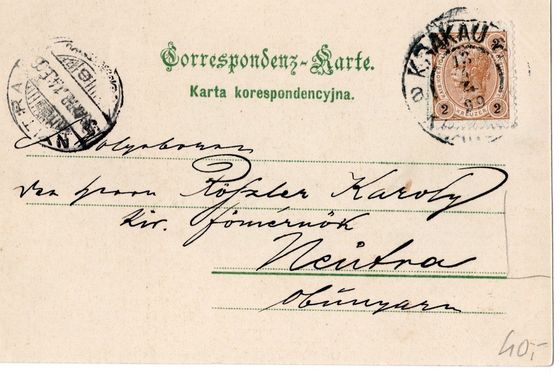 Correspondenz-Karte.
Karta korespondencyjna.
KRAKAU
2 2
NYITRA
den Herrn Rößler Karoly
kir. főmérnök
Neutra
Obungarn
40,-